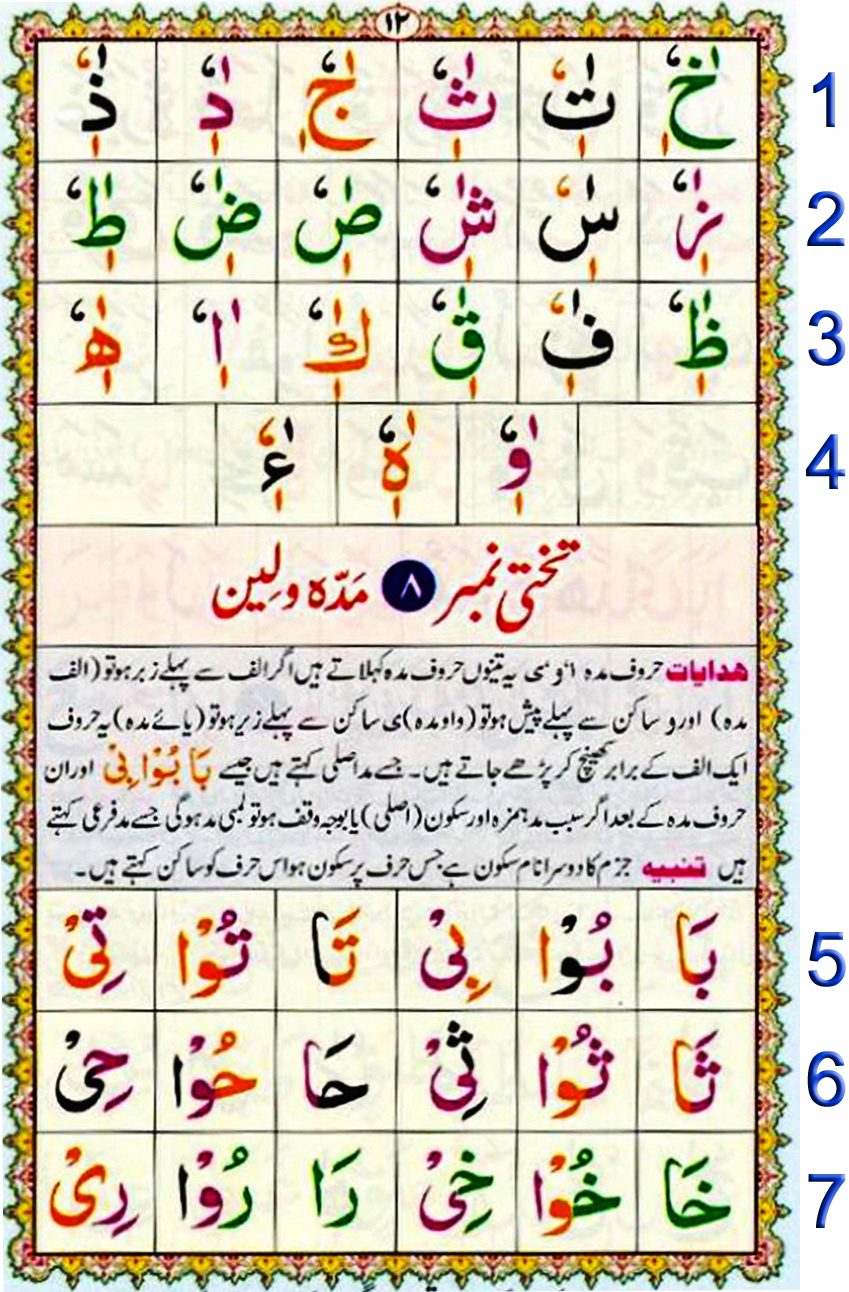 ١٢
خٰٖٗ تٰٖٗ ثٰٖٗ جٰٖٗ دٰٖٗ ذٰٖٗ 1
زٰٖٗ سٰٖٗ شٰٖٗ صٰٖٗ ضٰٖٗ طٰٖٗ 2
ظٰٖٗ فٰٖٗ قٰٖٗ كٰٖٗ اٰٖٗ ھٰٖٗ 3
وٰٖٗ ہٰٖٗ ءٰٖٗ 4
تختی نمبر ٨ مَدّہ و لِین
ھدایات حروف مدہ ا ،و ،ی یہ تینوں حروف مدہ کہلاتے ہیں اگر الف سے پہلے زبر ہو تو (الف
مدہ) اور و ساکن سے پہلے پیش ہو تو (واو مدہ) ی ساکن سے پہلے زیر ہو تو (یائے مدہ) یہ حروف
ایک الف کے برابر کھینچ کر پڑھے جاتے ہیں۔ جسے مد اصلی کہتے ہیں جیسے بَا بُوْا بِیْ اور ان
حروف مدہ کے بعد اگر سبب مد ہمزہ اور سکون (اصلی) یا بوجہ وقف ہو تو لمبی مد ہوگی جسے مد فرعی کہتے
ہیں تنبیہ جزم کا دوسرا نام سکون ہے جس حرف پر سکون ہو اس حرف کو ساکن کہتے ہیں۔
بَا بُوْا بِیْ تَا تُوْا تِیْ 5
ثَا ثُوْا ثِیْ حَا حُوْا حِیْ 6
خَا خُوْا خِیْ رَا رُوْا رِیْ 7